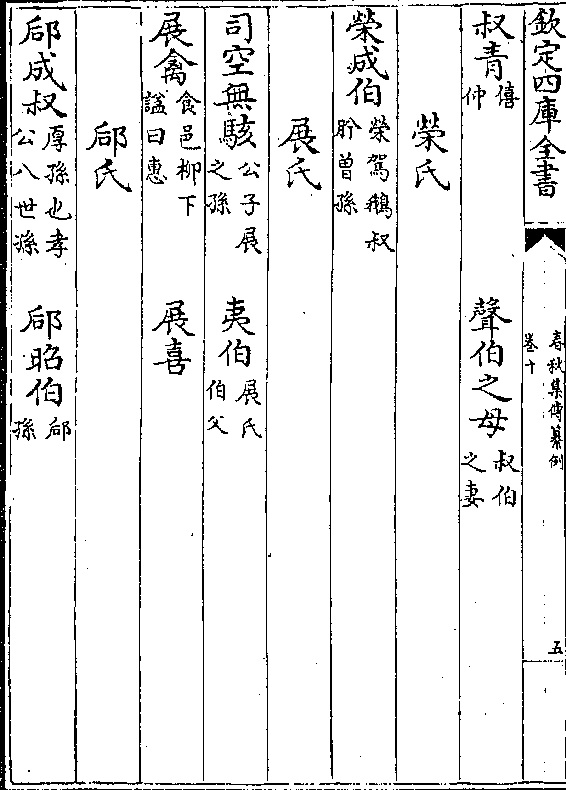 欽定四庫全書
春秋集傳纂例
卷十
五
叔青僖仲 聲伯之母叔伯之妻
榮氏
榮成伯榮駕鵝叔肸曾孫
展氏
司空無駭公子展之孫 夷伯展氏伯父
展禽食邑柳下諡曰惠 展喜
郈氏
郈成叔厚孫也孝公八世孫 郈昭伯郈孫